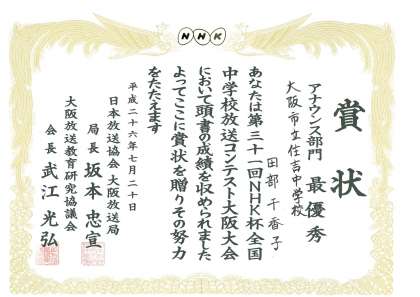 NHK
賞状
アナウンス部門 最優秀
大阪市立住吉中学校
田部千香子
あなたは第三十一回NHK杯全国
中学校放送コンテスト大阪大会
において頭書の成績を収められました
よってここに賞状を贈りその努力
をたたえます
平成二十六年七月二十日
日本放送協会 大阪放送局
局長 坂本忠宣
大阪放送教育研究協議会
会長 武江光弘